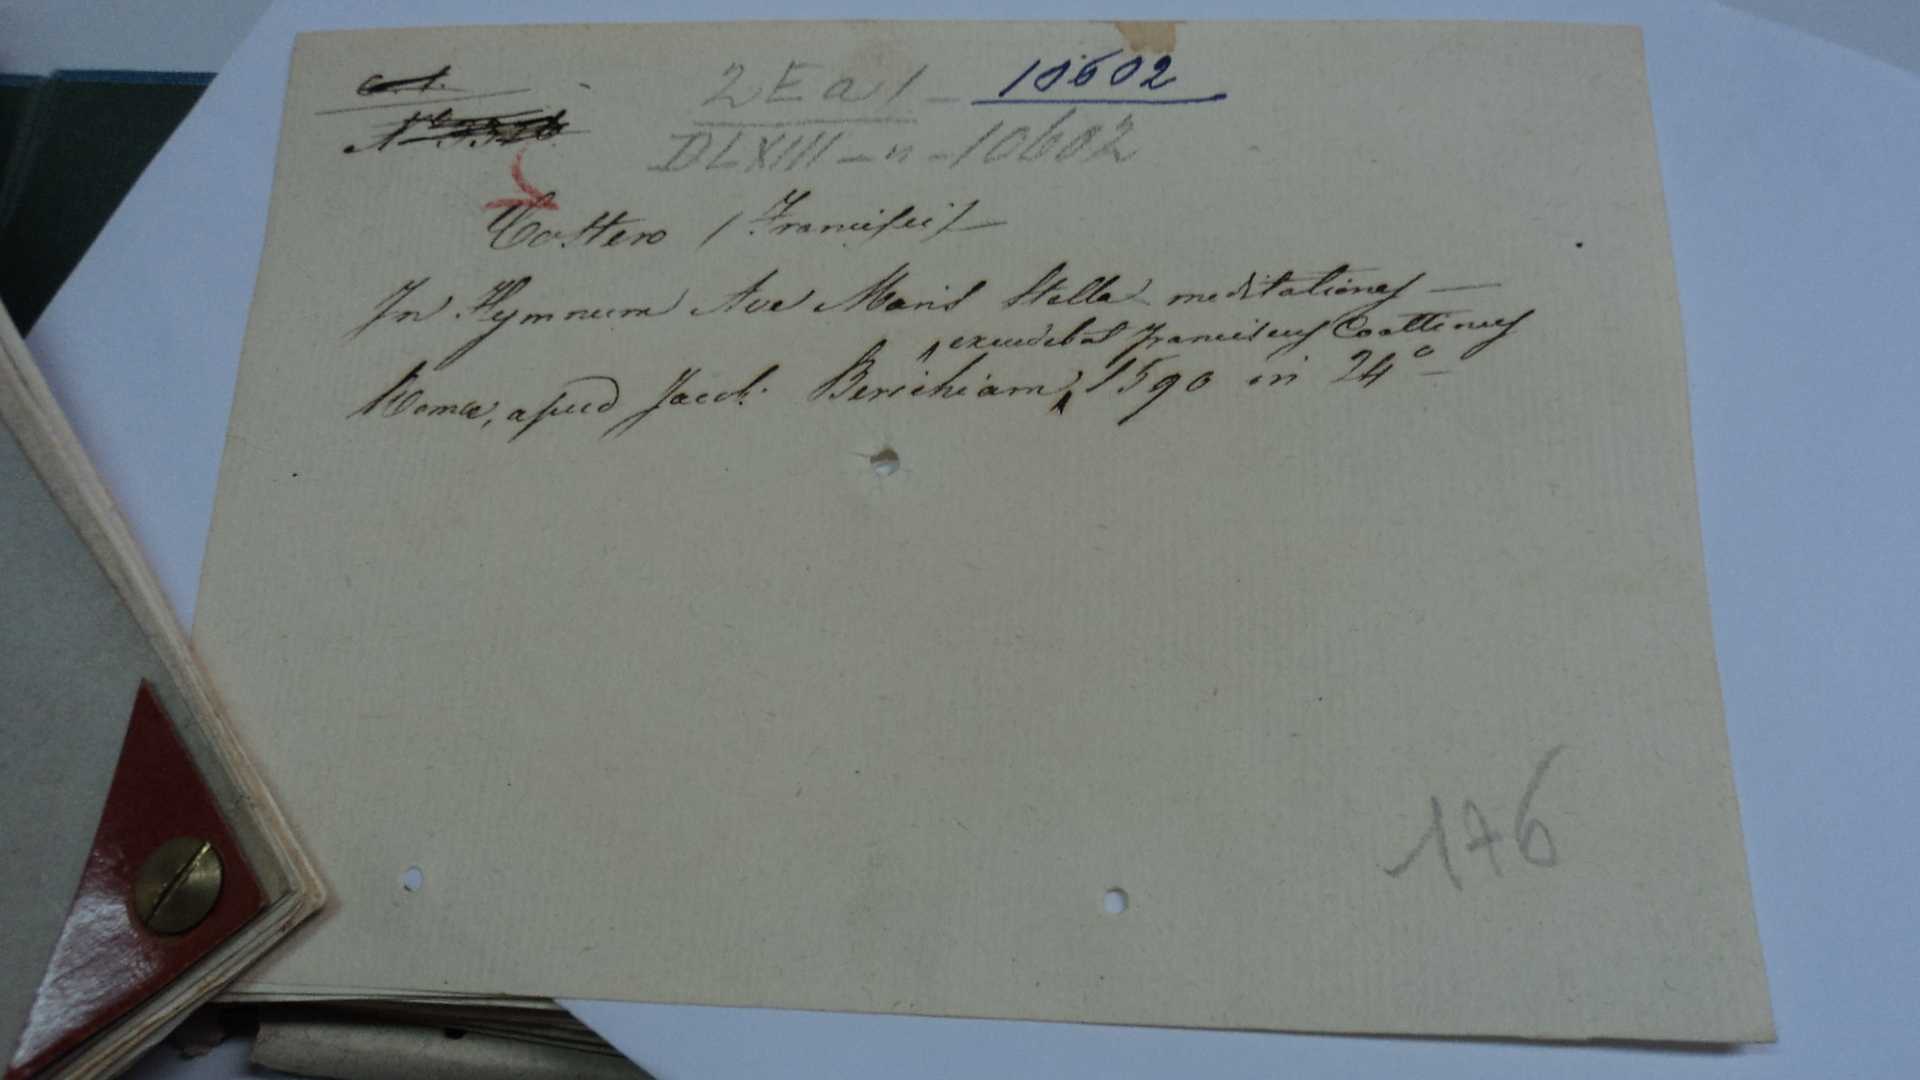 2 E a 1 - 10602
DLXIII - n - 10602
Costero (Francisci)
In Hymnum Ave Maris Stella meditationes —
, excudebat Franciscus Coattinus
Romae, apud Jacob. Berichiam, 1590 in 24º
176